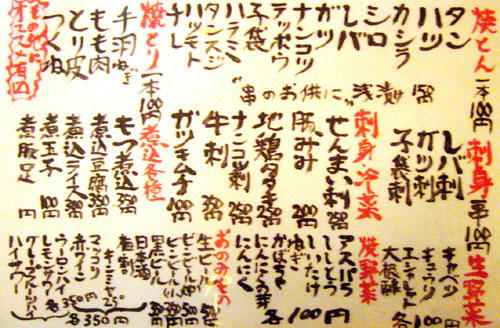 焼とん 一本100円
タン
ハツ
カシラ
シロ
レバ
ガツ
ナンコツ
テッポウ
子袋
ハラミ
タンスジ
チレ
"串のお供に" 浅漬 150円
焼とり 一本100円
手羽
ねぎ
もも肉
とり皮
つくね
刺身 一串100円
レバ刺
ガツ刺
子袋刺
刺身 冷菜
せんまい刺
豚みみ 200円
地鶏タタキ 250円
ナンコツ刺
牛刺
ガツキムチ
煮込各種
もつ煮込 350
煮込豆腐 350
煮込ライス
煮玉子 100
煮豚足 円
生野菜
キャベツ
キュウリ
エシャレット
大根酢
各100円
焼野菜
アスパラ
ししとう
しいたけ
ねぎ
かぼちゃ
にんにくの芽
にんにく
各100円
おのみもの
生ビール
黒ビール
日本酒
梅割
キンミヤ 25°
マッコリ
赤ワイン
ウーロンハイ 350円
レモンサワー 各350円
グレープフルーツハイ
ハイサワー